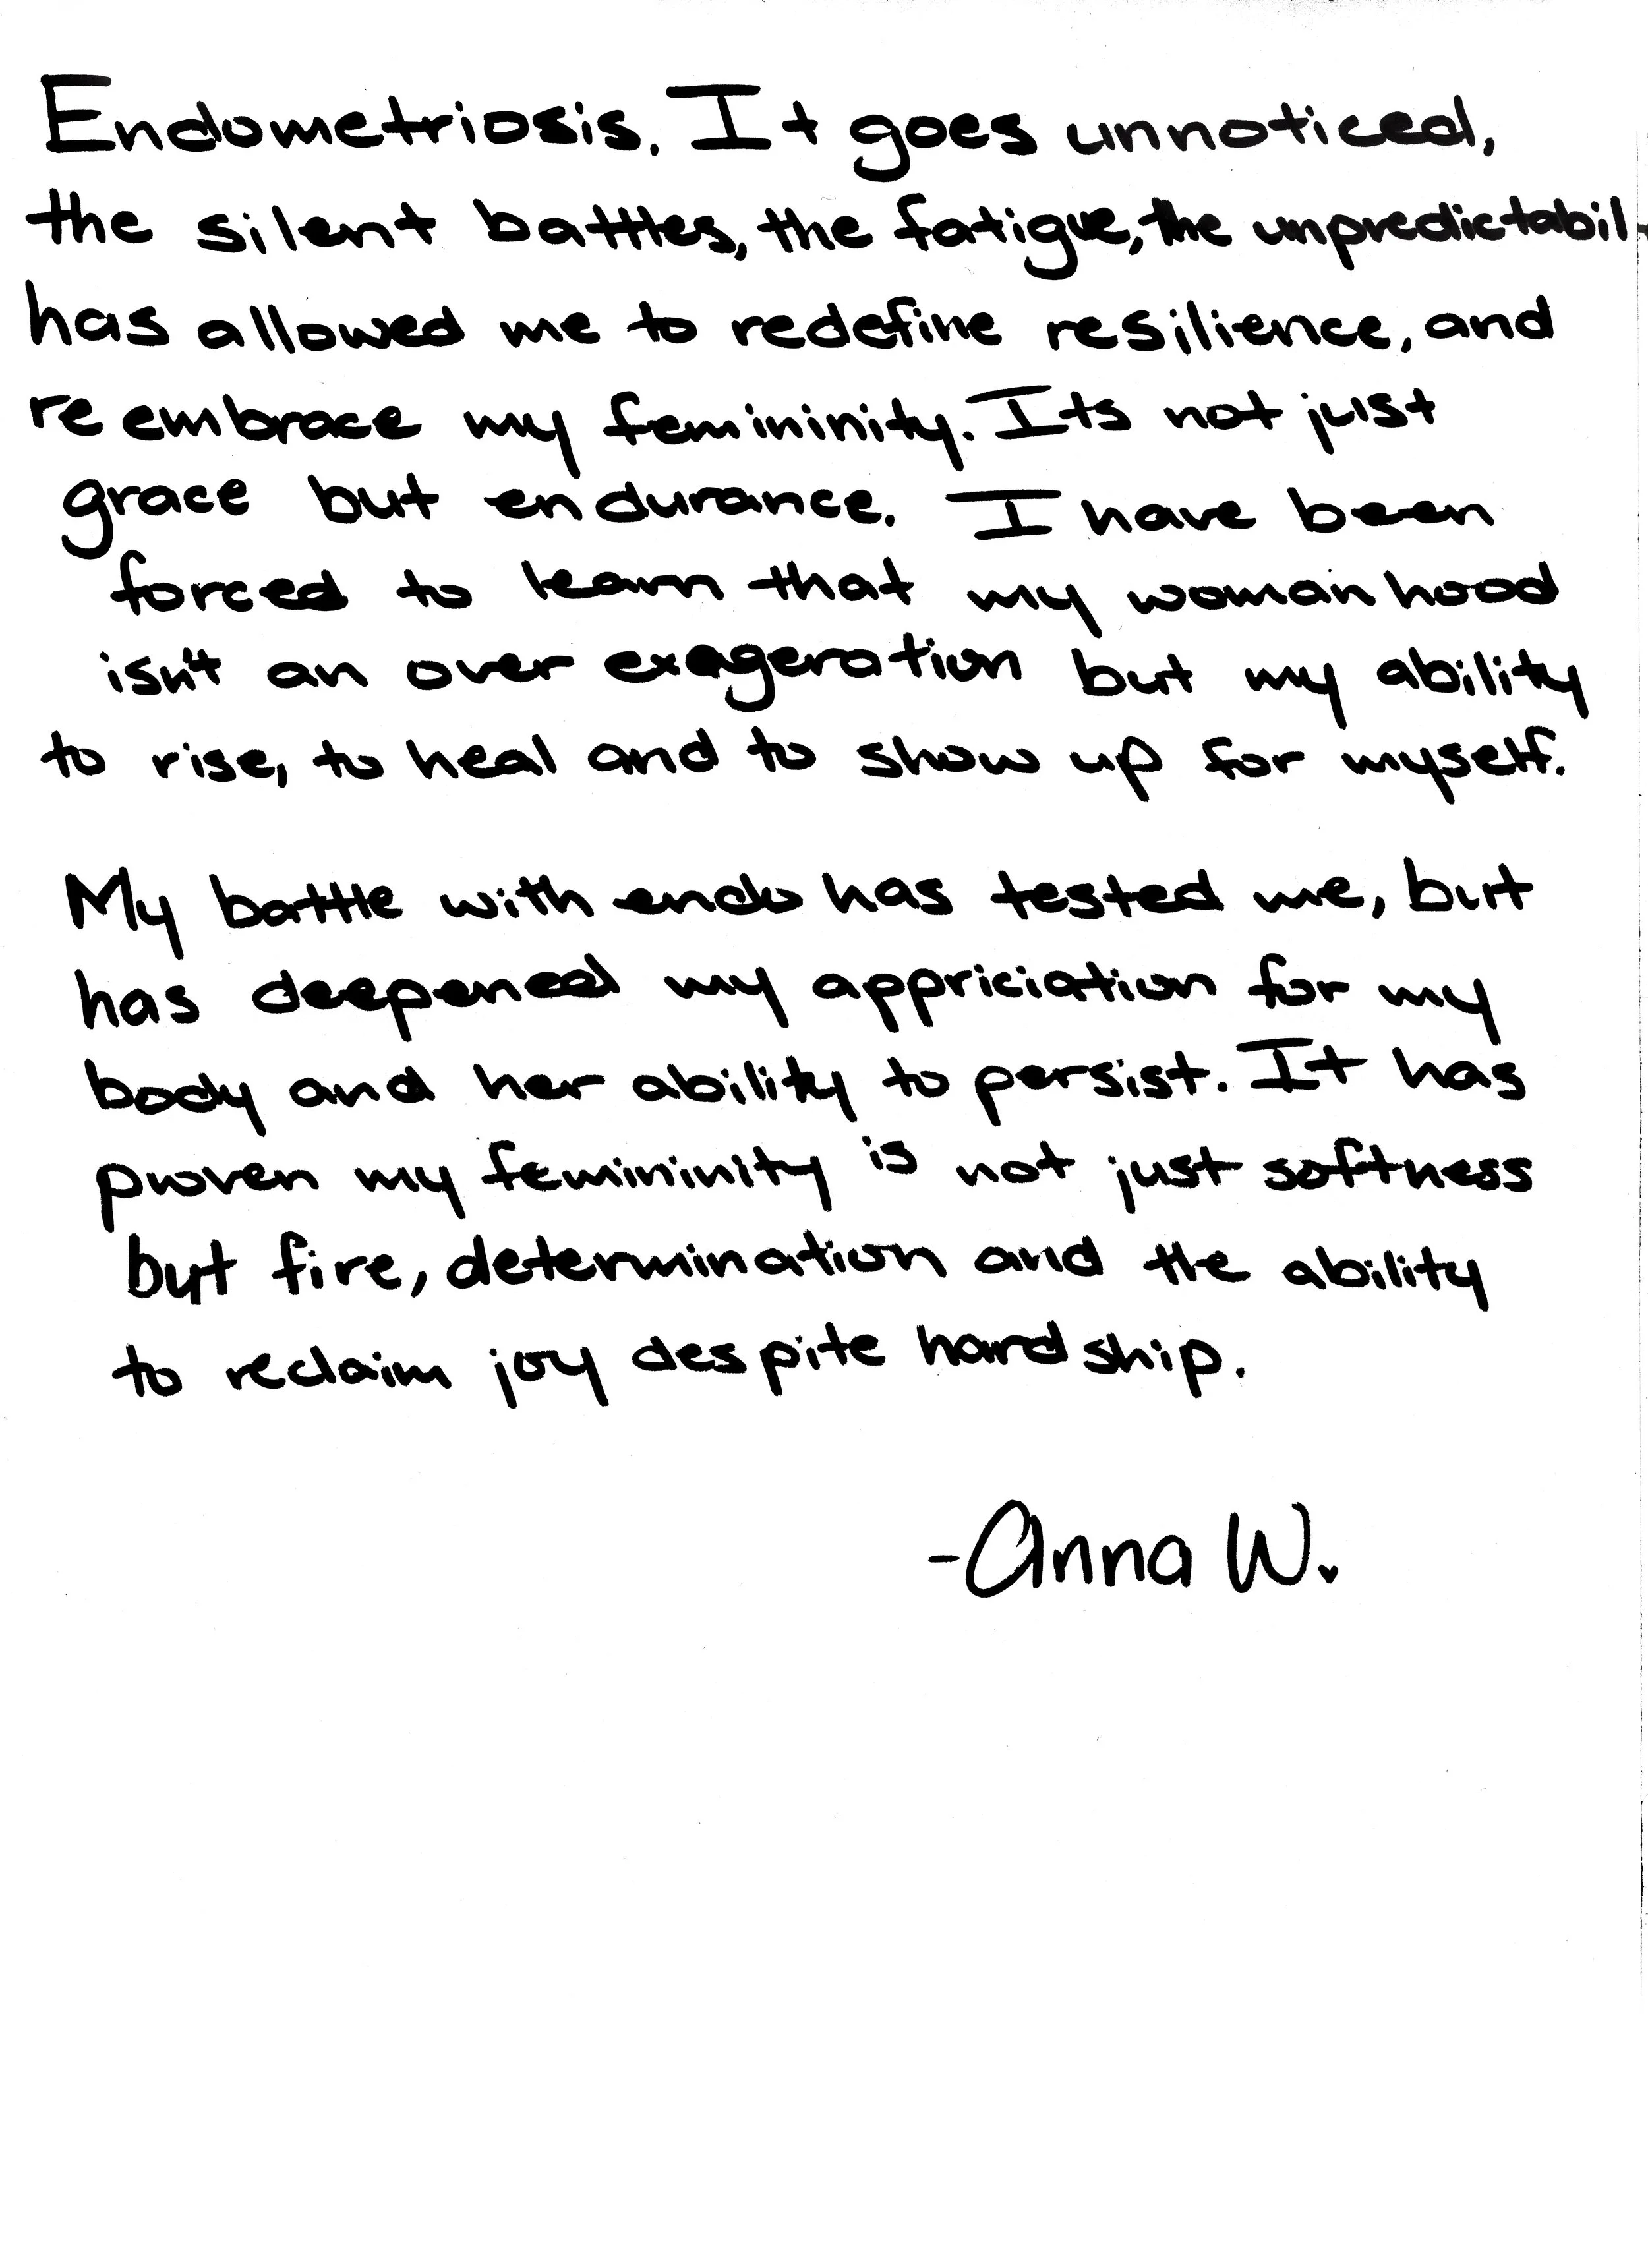 Endometriosis. It goes unnoticed,
the silent battles, the fatigue, the unpredictabil
has allowed me to redefine resilience, and
re embrace my femininity. Its not just
grace but endurance. I have been
forced to learn that my womanhood
isn't an over exageration but my ability
to rise, to heal and to show up for myself.
My battle with endo has tested me, but
has deepened my appriciation for my
body and her ability to persist. It has
proven my femininity is not just softness
but fire, determination and the ability
to reclaim joy despite hardship.
-Anna W.